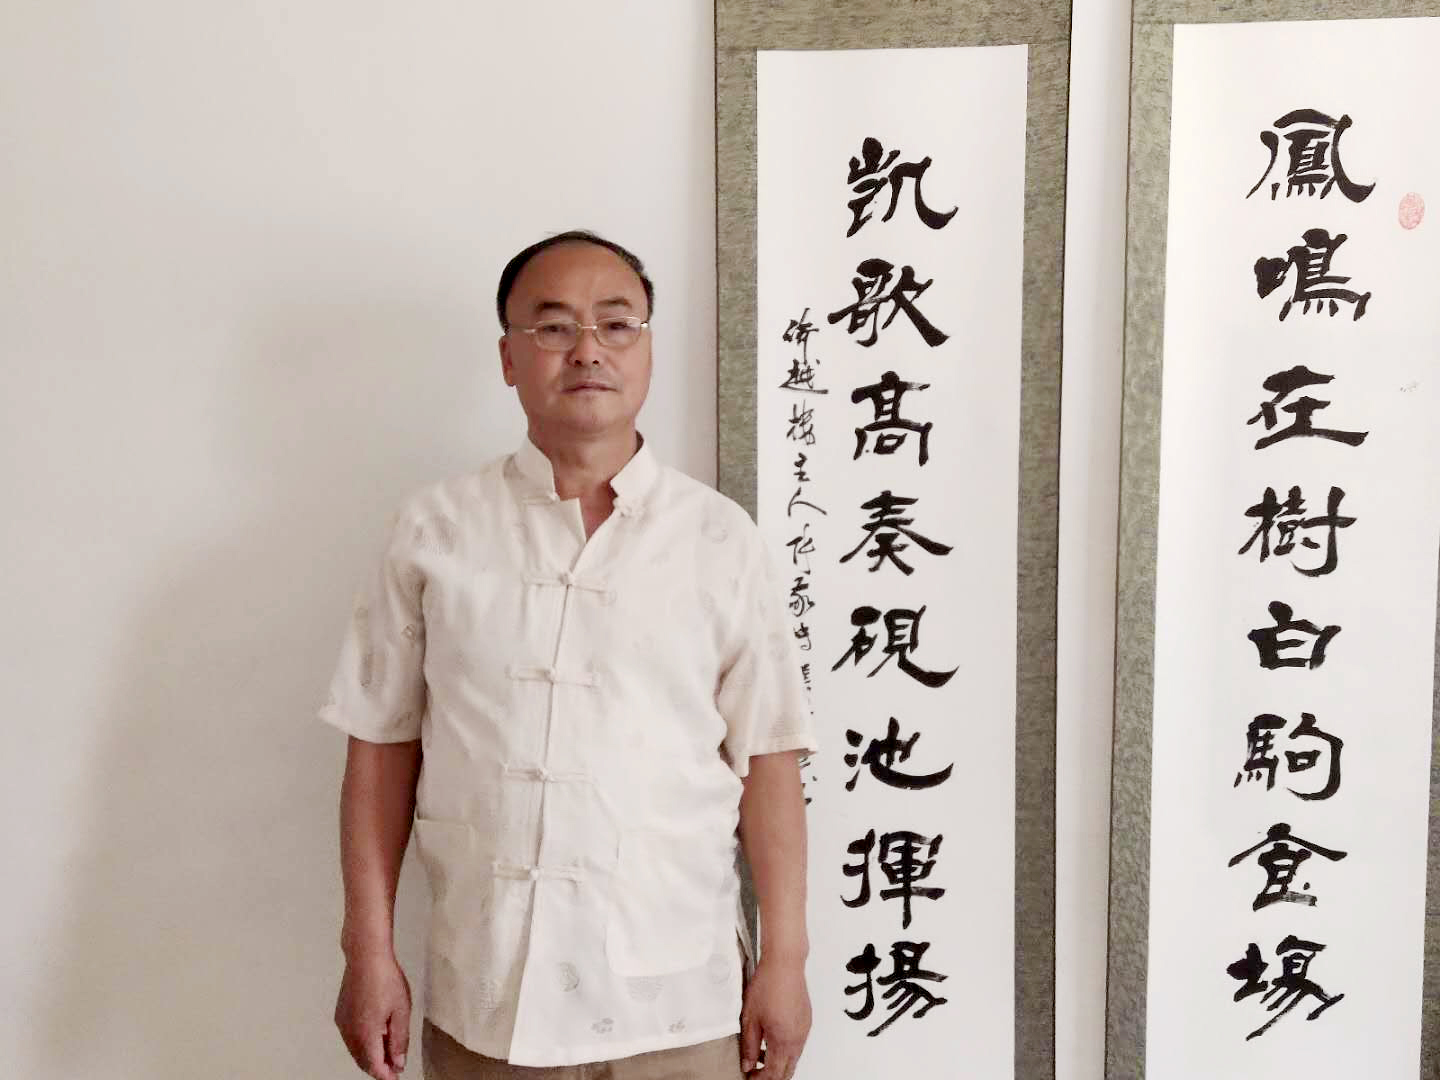 鳳鳴在樹白駒食場
凱歌高奏硯池揮揚
濟越樓主人